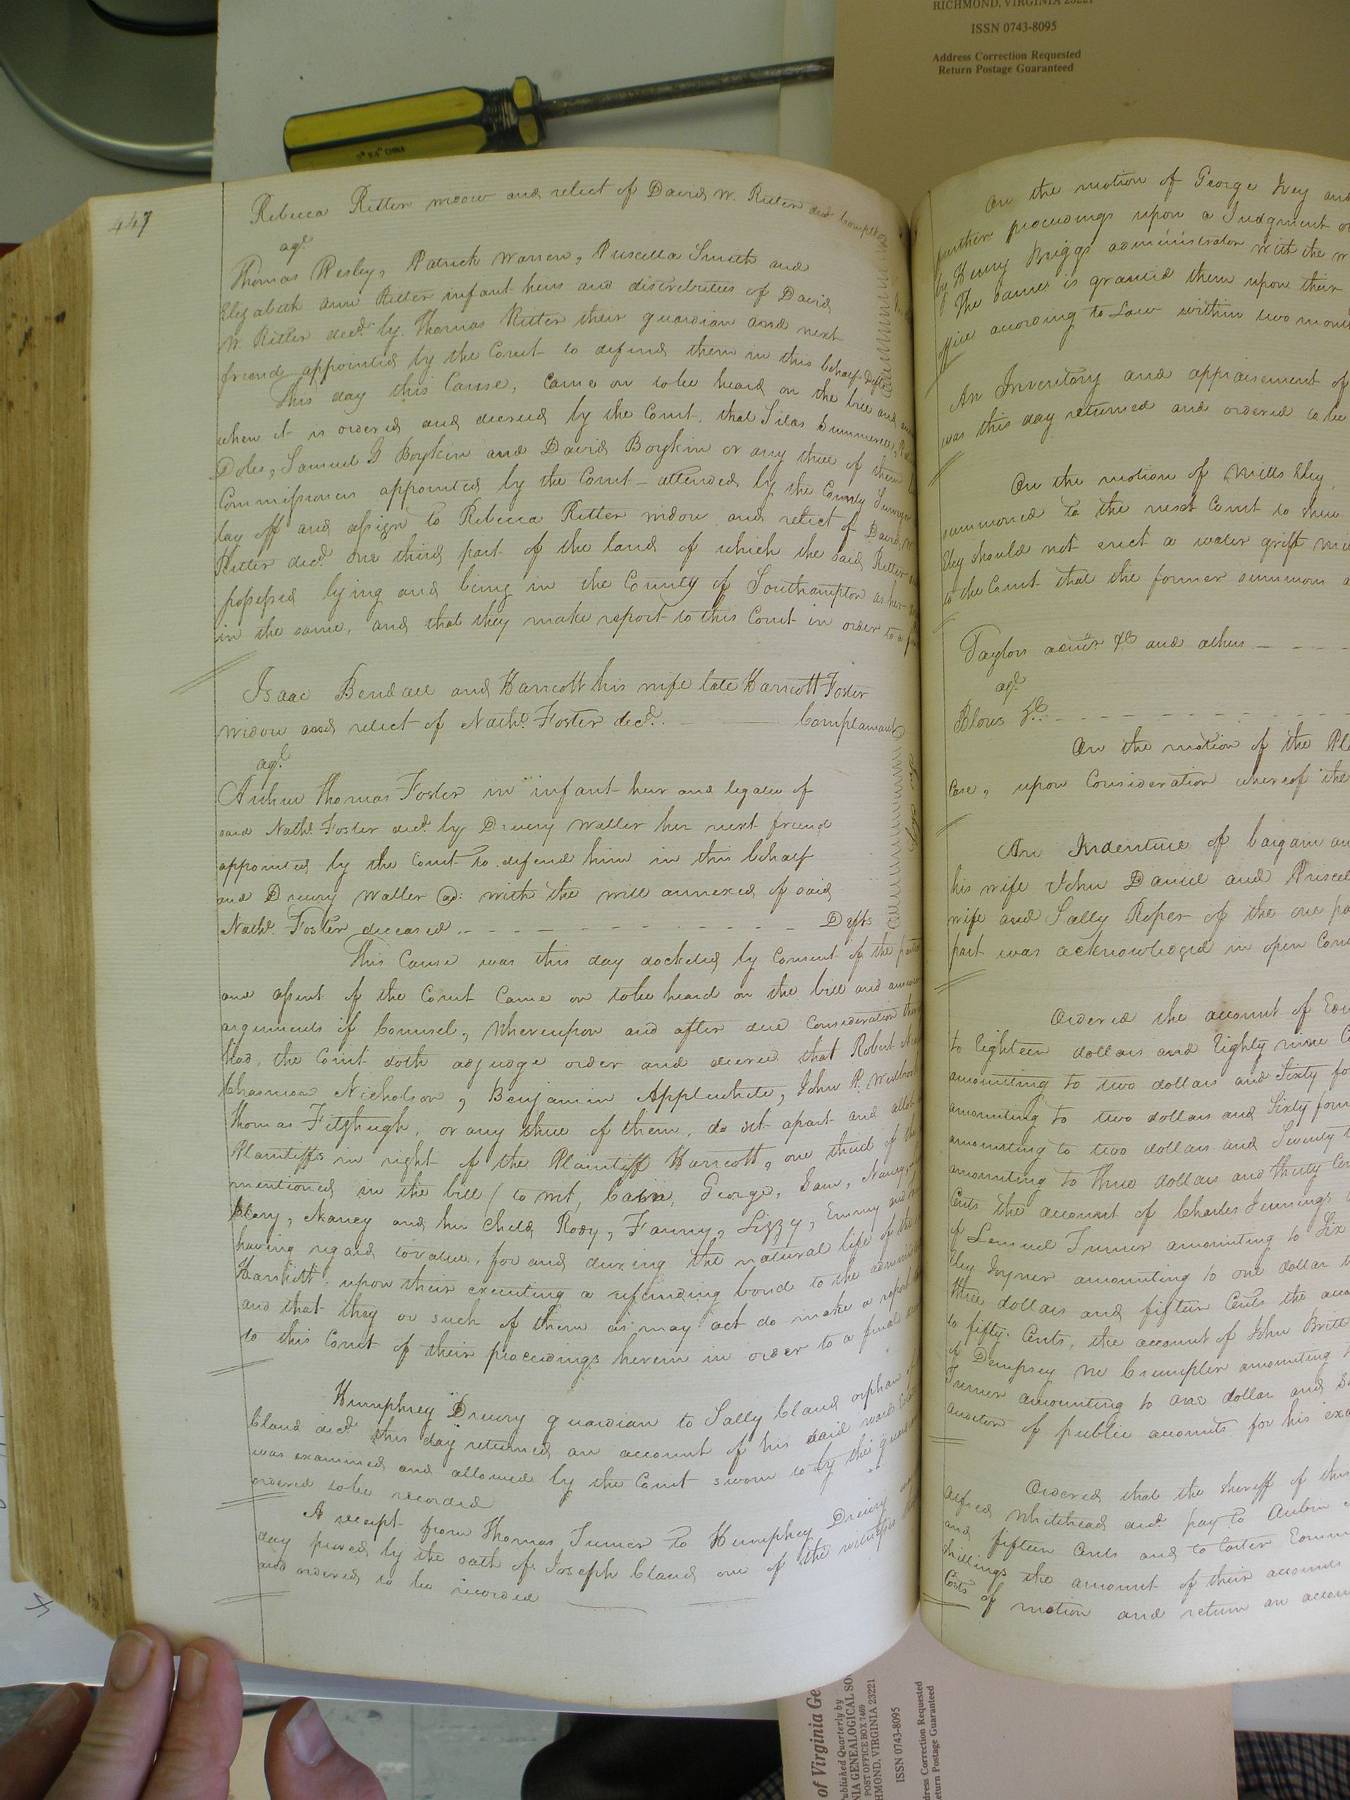 RICHMOND, VIRGINIA 23221
ISSN 0743-8095
Address Correction Requested
Return Postage Guaranteed
447
Rebecca Ritter widow and relict of David W. Ritter decd Complt
agt
Thomas Presley, Patrick Warren, Priscilla Smith and
Elizabeth Ann Ritter infant heirs and distributees of David
W. Ritter decd by Thomas Ritter their guardian and next
friend appointed by the Court to defend them in this behalf Defts
This day this Cause, came on to be heard on the bill and
when it is ordered and decreed by the Court, that Silas Summerell,
Doles, Samuel B Boykin and David Boykin or any three of them
Commissioners appointed by the Court attended by the County Surveyor
lay off and assign to Rebecca Ritter widow and relict of David W
Ritter decd one third part of the land of which the said Ritter
possessed lying and being in the County of Southampton as her
in the same, and that they make report to this Court in order to a
Isaac Bendall and Harriott his wife late Harriott Foster
widow and relict of Nathl Foster decd. Complainants
agt
Arthur Thomas Foster an infant heir and legatee of
said Nathl Foster decd by Drewry Waller his next friend
appointed by the Court to defend him in this behalf
and Drewry Waller ad: with the will annexed of said
Nathl Foster deceased Defts
This Cause was this day docketed by Consent of the parties
and assent of the Court Came on to be heard on the bill and answers
arguments of Counsel, Whereupon and after due Consideration
had, the Court doth adjudge order and decree that Robert
Nicholson, Benjamin Applewhite, John P.
Thomas Fitzhugh, or any three of them, do set apart and allot
Plaintiffs in right of the Plaintiff Harriott, one third of the
mentioned in the bill (to wit, Cabin, George, Sam, Nancy,
Mary, Nancy and her Child Rosy, Fanny, Lizzy, Emmy and
having regard to value, for and during the natural life of the
Harriott upon their executing a refunding bond to the
and that they or such of them as may act do make a report
to this Court of their proceedings herein in order to a final
Humphrey Drewry guardian to Sally Bland orphan of
Bland decd this day returned an account of his said wards
was examined and allowed by the Court sworn to by the guardian
ordered to be recorded
A receipt from Thomas Turner to Humphrey Drewry
day proved by the oath of Joseph Bland one of the witnesses
and ordered to be recorded
On the motion of George Ivey and
further proceedings upon a Judgment
by Henry Briggs administrator with the
The same is granted them upon their
office according to Law within two months
An Inventory and appraisement of
was this day returned and ordered to be
On the motion of Mills Eley
summoned to the next Court to shew
Eley should not erect a water grist mill
to the Court that the former summons
Taylors admr &c and others
agt
Blows &c
On the motion of the
Case, upon Consideration whereof the
An Indenture of bargain and
his wife John Daniel and
wife and Sally Roper of the one part
part was acknowledged in open Court
Ordered the account of
to Eighteen dollars and Eighty nine
amounting to two dollars and Sixty
amounting to two dollars and Sixty four
amounting to two dollars and Seventy
amounting to three dollars and thirty
Cents the account of Charles Jennings
of Lemuel Turner amounting to Six
Eley Joyner amounting to one dollar
three dollars and fifteen Cents the
to fifty Cents, the account of John Britt
of Dempsey W Crumpler amounting
Turner amounting to one dollar and
auditor of public accounts for his
Ordered that the sheriff of this
Alfred Whitehead and pay to
and fifteen Cents and to Carter
shillings the amount of their accounts
Costs of motion and return an account
of Virginia Ge
Published Quarterly by
GENEALOGICAL SO
POST OFFICE BOX 7469
HMOND, VIRGINIA 23221
ISSN 0743-8095
ddress Correction Requested
eturn Postage Guaranteed